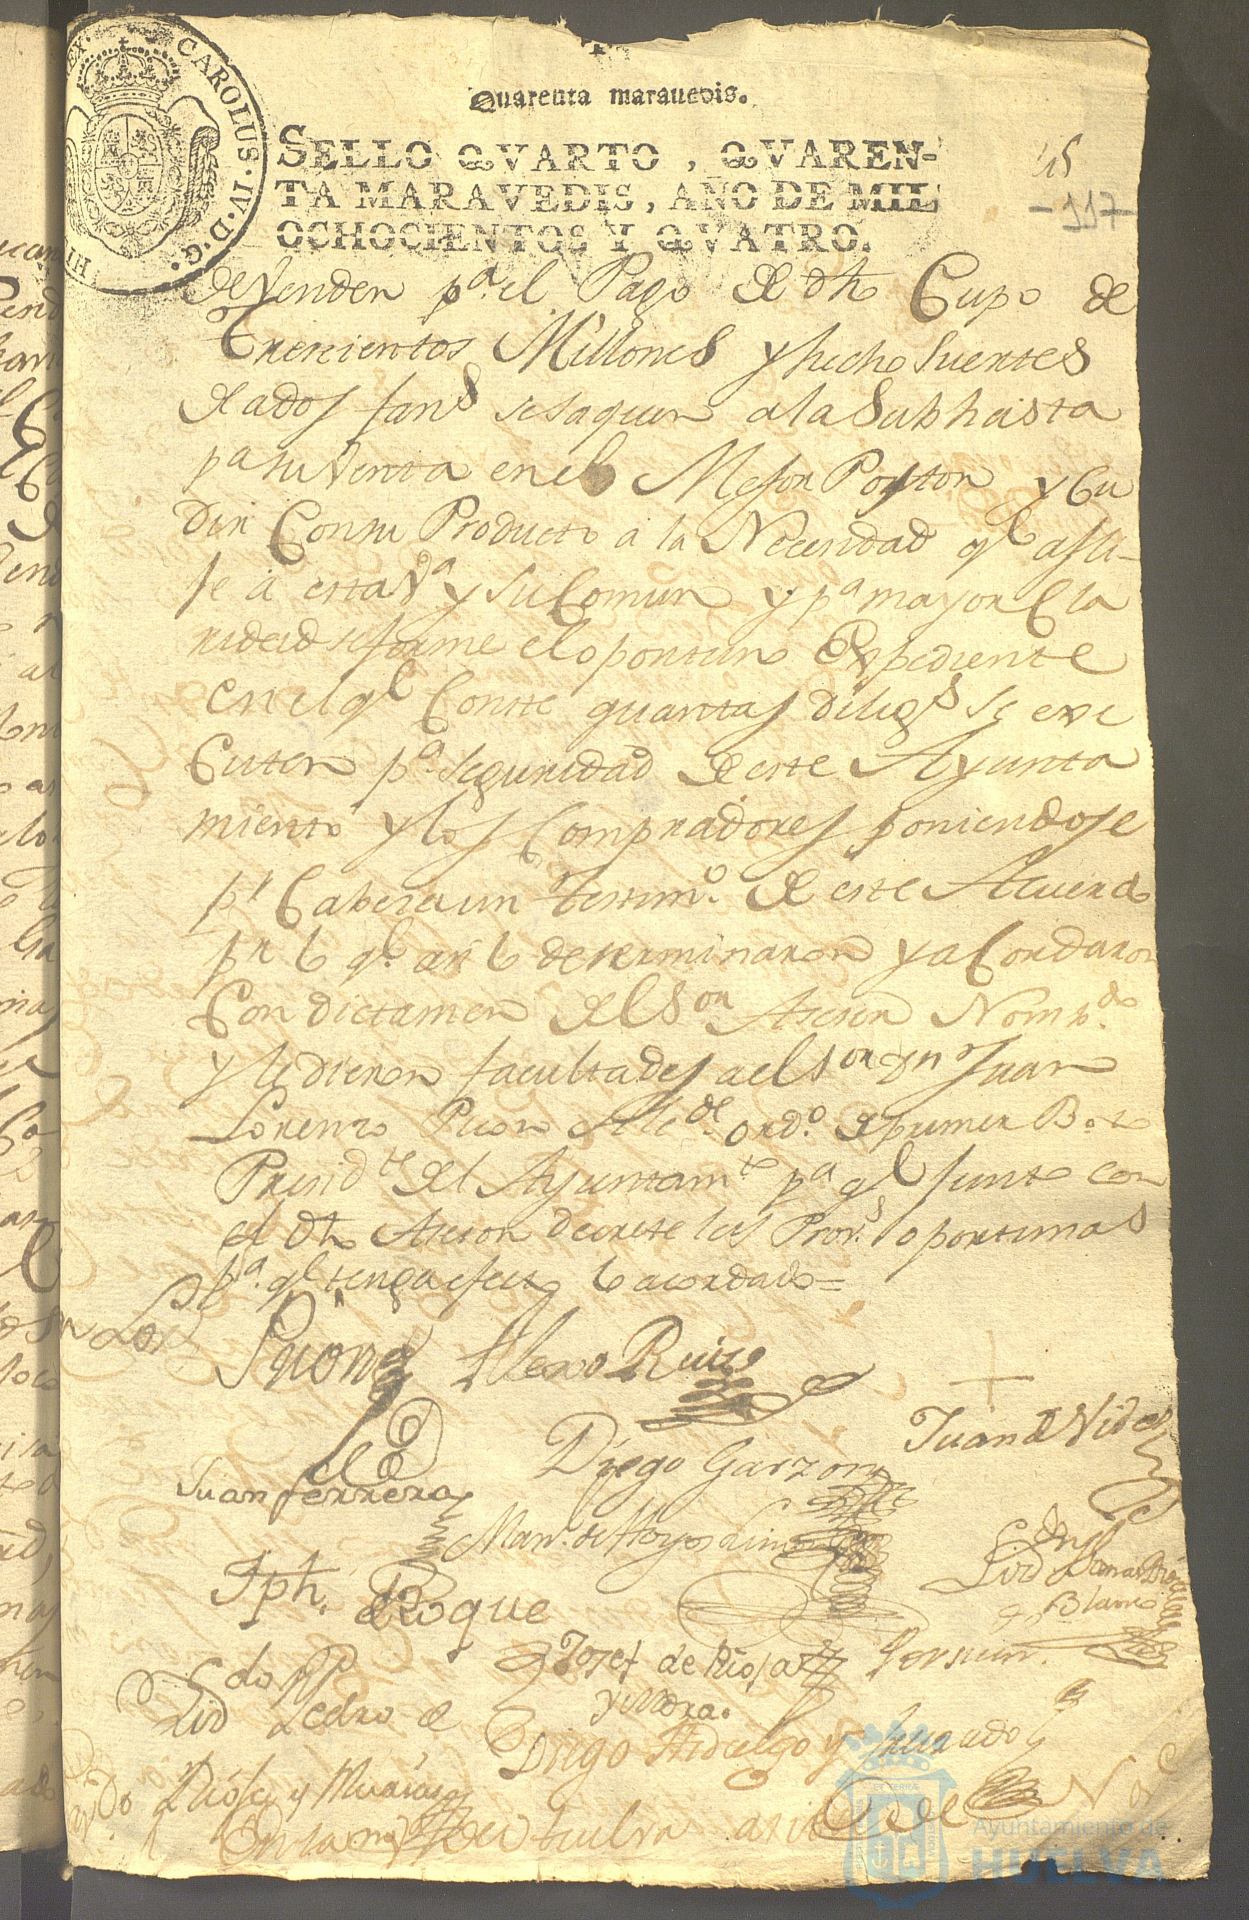 CAROLUS · IV · D · G ·
Quarenta marauedis.
SELLO QVARTO, QVAREN-
TA MARAVEDIS, AÑO DE MIL
OCHOCIENTOS Y QVATRO.
117
de Vender pª. el Pago de dho Cupo de
Trescientos Millones y hecho Suertes
de ados fans se saquen a la Subhasta
pª su Venta en el Mejor Postor y Cu
dir Con su Producto a la Necesidad qe afli-
je a esta Vª y su Comun y pª mayor Cla
ridad se forme el oportuno Expediente
en el qe Conste quantas diligs se exe
Cuten pª. seguridad de este Ayunta
miento y los Compradores poniendose
pr Cabeza un testimo. de este Acuerdo
pr lo qe. asi lo determinaron y a Cordaron
Con dictamen del Sor Asesor Nombdo
y le dieron facultades a el Sor Dn Juan
Lorenzo Picon Alcde ordo. de primer Boto
Presidte del Ayuntamto pª qe junto con
el dho Asesor decrete las Provs oportunas
pª. qe tenga efecto lo acordado =
Picon Alexo Ruiz
Diego Garzon Juan de Vides
Juan ferrera
Man. de Hoyos Limon
Jph. Roque
Blanco
Josef de Rioja Asesor.
y Mora.
Ldo Pedro de
Diego Hidalgo y Jurado
Dioſe y
En la Vª de Huelva
Ayuntamiento de
HUELVA